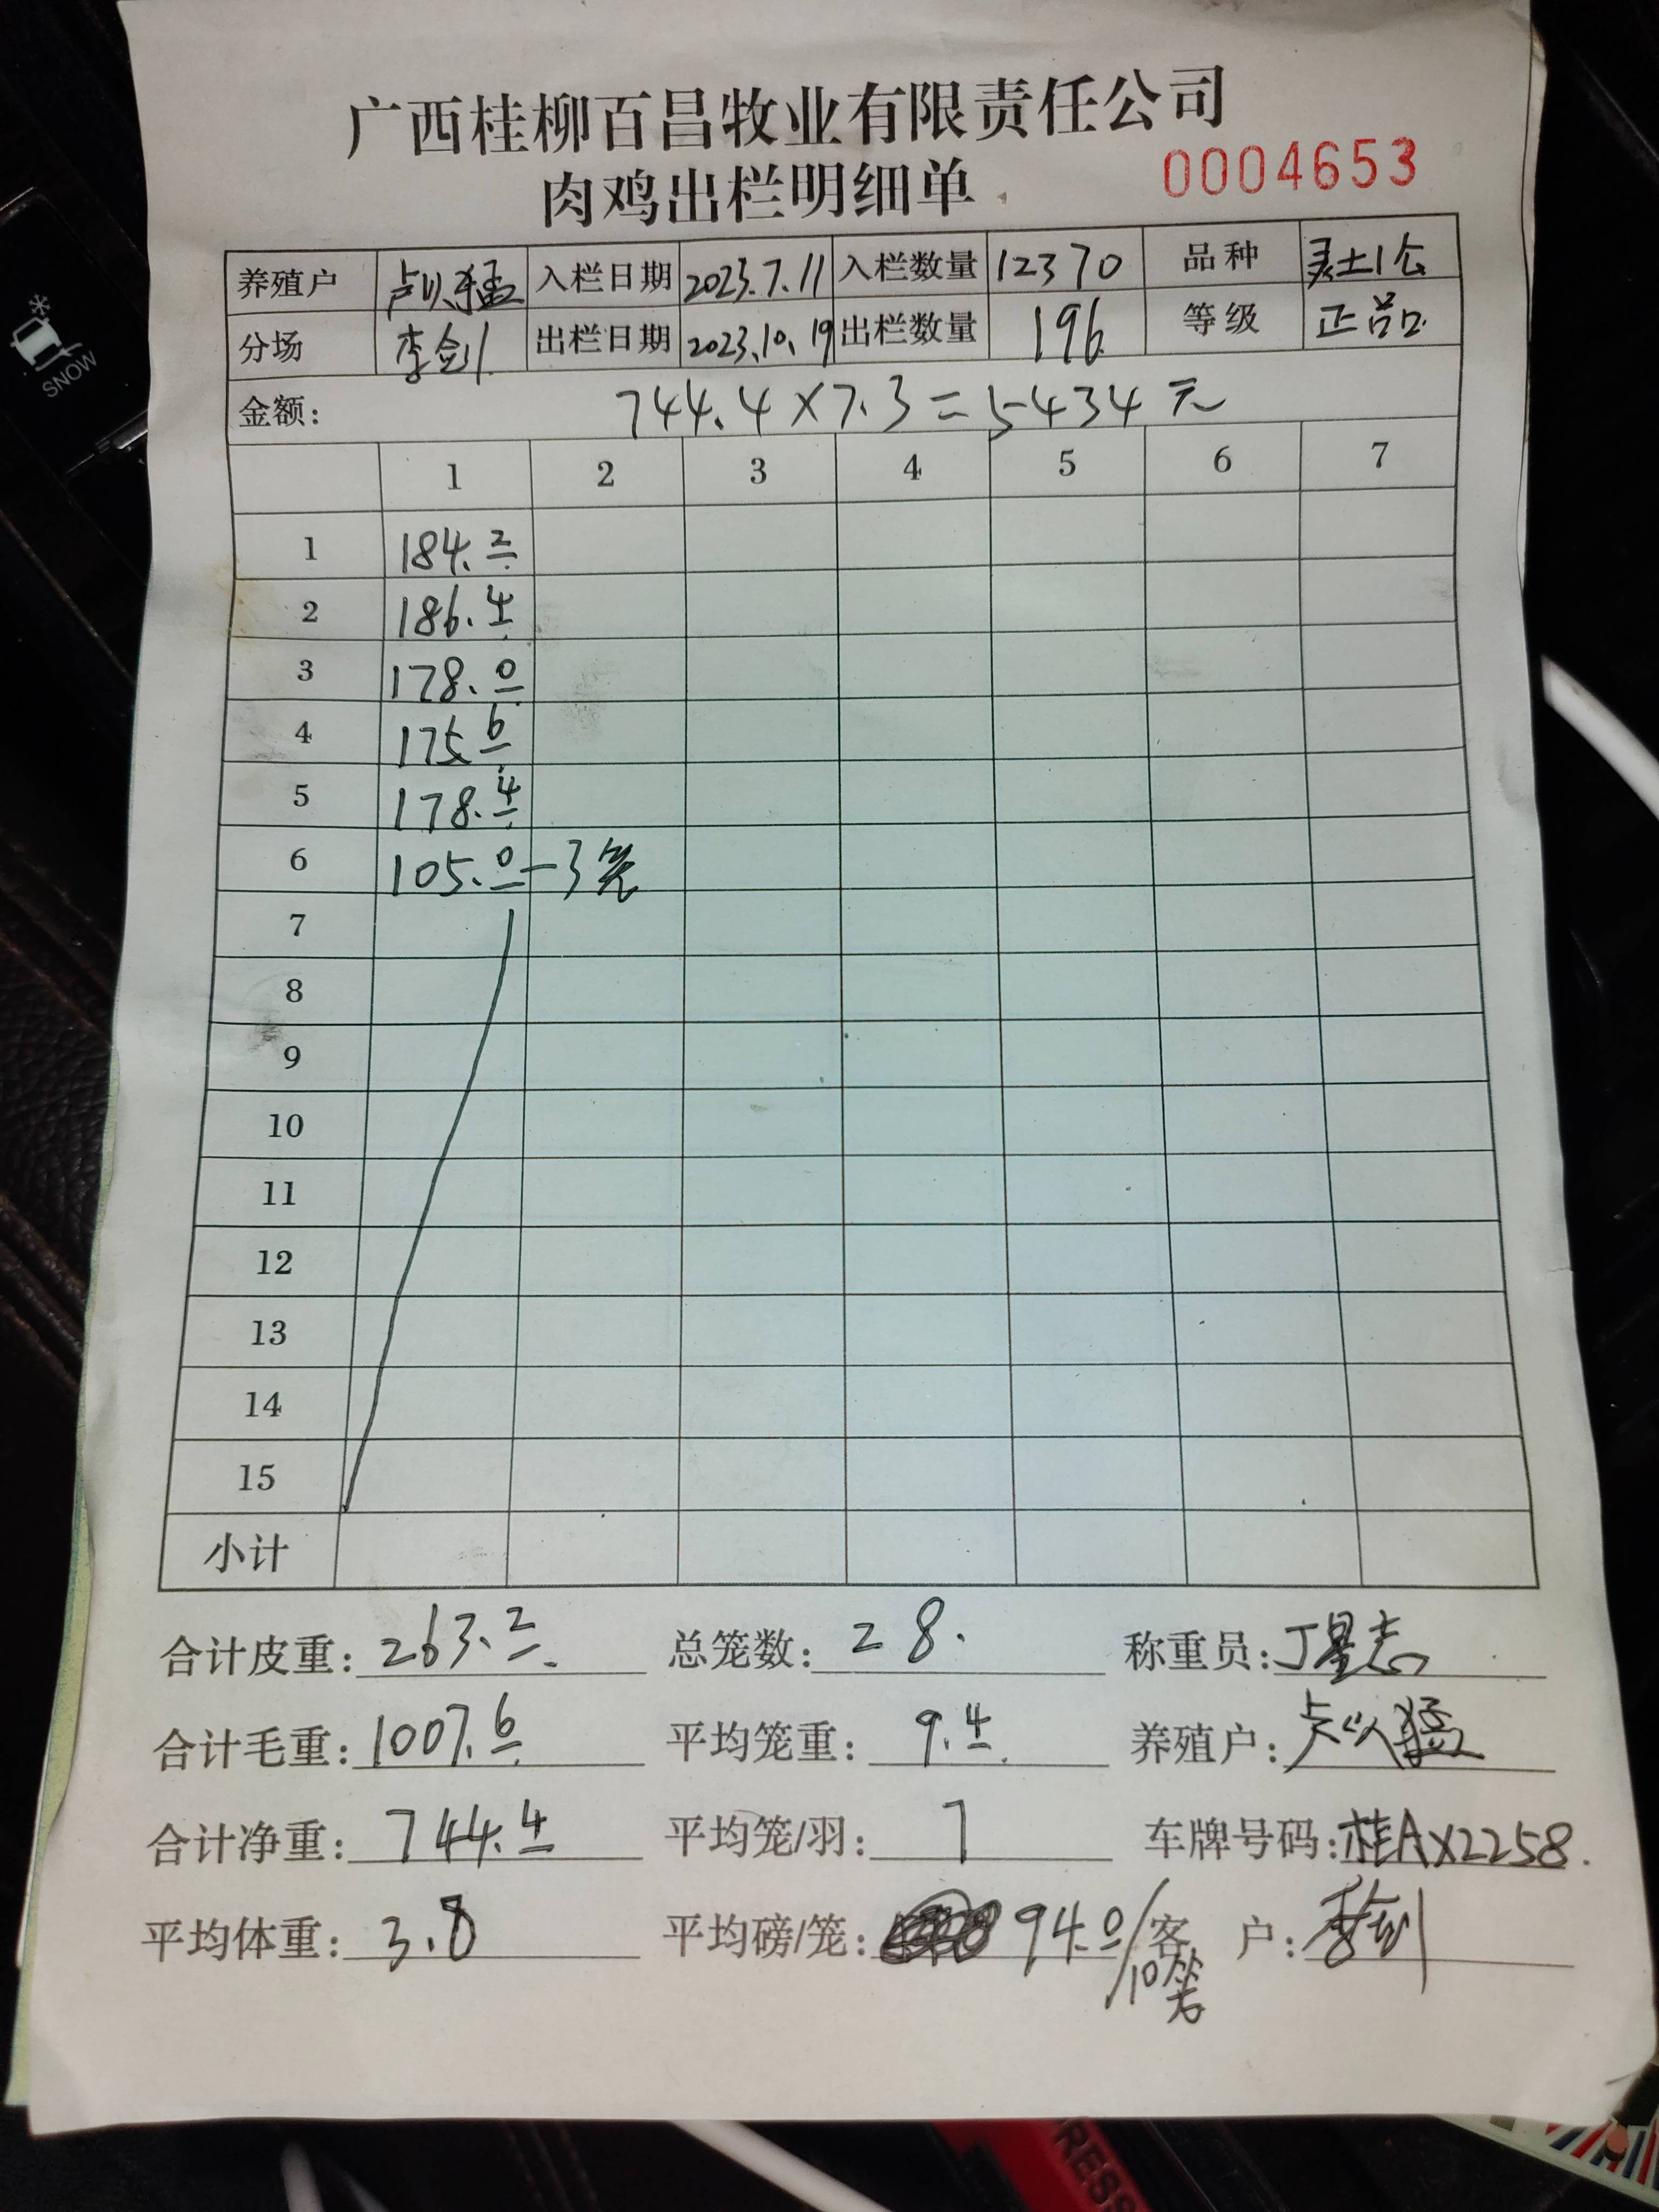 广西桂柳百昌牧业有限责任公司
肉鸡出栏明细单
0004653
养殖户 卢以猛 入栏日期 2023.7.11 入栏数量 12370 品种 灵土1公
分场 李剑 出栏日期 2023.10.19 出栏数量 196 等级 正品
金额: 744.4×7.3=5434元
1 2 3 4 5 6 7
1 184.2
2 186.4
3 178.0
4 175.6
5 178.4
6 105.0-3笼
7
8
9
10
11
12
13
14
15
小计
合计皮重: 263.2 总笼数: 28. 称重员: 丁星志
合计毛重: 1007.6 平均笼重: 9.4 养殖户: 卢以猛
合计净重: 744.4 平均笼/羽: 7 车牌号码: 桂AX2258.
平均体重: 3.8 平均磅/笼: 94.0/10笼 客户: 李剑
SNOW
PRESS